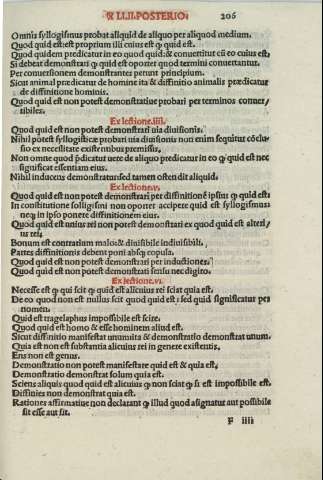 EX LI.II.POSTERIO⁊ 206
Omnis syllogismus probat aliquid de aliquo per aliquod medium.
Quod quid est: est proprium illi cuius est ꝙ quid est.
Quod quidem predicatur in eo quod quid: & conuertitur cū eo cuius est.
Si debeat demonstrari ꝙ quid est oportet quod termini conuertantur.
Per conuersionem demonstrantes petunt principium.
Sicut animal prædicatur de homine ita & diffinitio animalis prædicatur
de diffinitione hominis.
Quod quid est non potest demonstratiue probari per terminos conuer,
tibiles.
Ex lectione.iiii.
Quod quid est non potest demonstrari uia diuisionis.
Nihil potest syllogistice probari uia diuisionis non enim sequitur cōclu,
sio ex necessitate existentibus premissis.
Non omne quod p̄dicatur uere de aliquo predicatur in eo ꝙ quid est nec
significat essentiam eius.
Nihil inducens demonstratur sed tamen ostendit aliquid.
Ex lectione.v.
Quod quid est non potest demonstrari per diffinitionē ipsius ꝙ quid est.
In constitutione syllogismi non oportet accipere quid est syllogismus:
neq; in ipso ponere diffinitionem eius.
Quod quid est unius rei non potest demonstrari ex quod quid est alteri/
us rei.
Bonum est contrarium malo: & diuisibile indiuisibili.
Partes diffinitionis debent poni absq; copula.
Quod quid est non potest demonstrari per inductionem.
Quod quid est non potest demonstrari sensu nec digito.
Ex lectione.vi.
Necesse est ꝙ qui scit ꝙ quid est alicuius rei sciat quia est.
De eo quod non est nullus scit quod quid est: sed quid significatur per
nomen.
Quid est tragelaphus impossibile est scire.
Quod quid est homo & esse hominem aliud est.
Sicut diffinitio manifestat unum ita & demonstratio demonstrat unum.
Quia est non est substantia alicuius rei in genere existentis.
Ens non est genus.
Demonstratio non potest manifestare quid est & quia est.
Demonstratio demonstrat solum quia est.
Sciens aliquis quod quid est alicuius ꝙ non scit ꝙ si est impossibile est.
Diffiniens non demonstrat quia est.
Rationes affirmatiue non declarant ꝙ illud quod asignatur aut possibile
sit esse aut sit.
F iiii